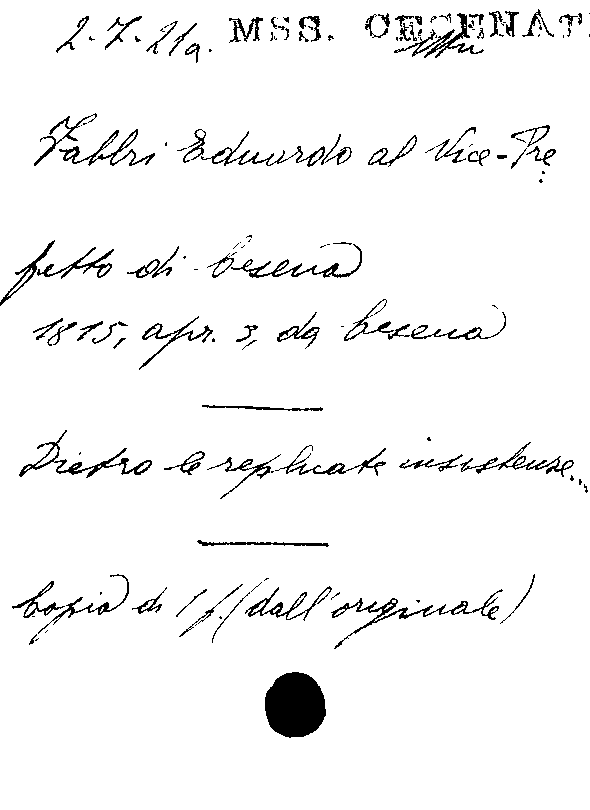 2.7.21a. MSS. CESENATI
Fabbri Eduardo al Vice-Pre
fetto di Cesena
1815, apr. 3, da Cesena
Dietro le replicate insistenze...
Copia di 1 f. (dall'originale)